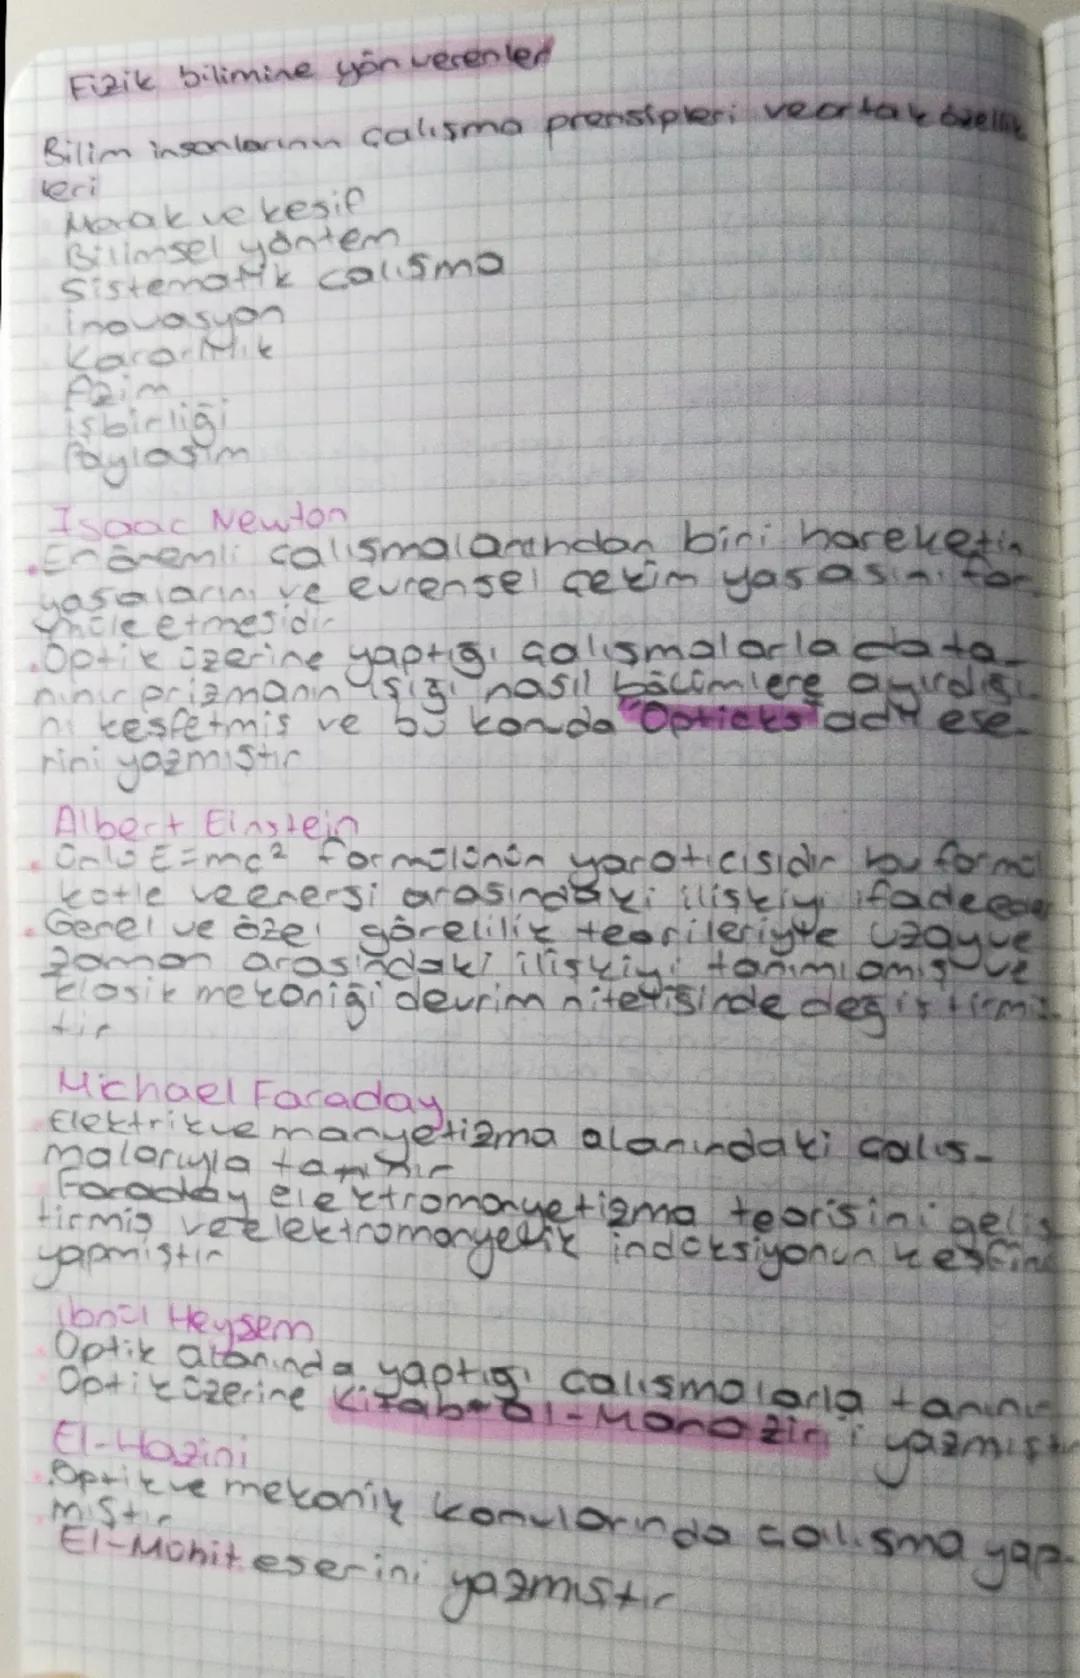 Fizik bilimine yön verenler
Bilim insanlarının çalışma prensipleri ve ortak özellik
leri
Merak ve keşif
Bilimsel yöntem
Sistematik çalışma
inovasyon
Kararlılık
Azim
işbirliği
Paylaşım
Isaac Newton
.En önemli çalışmalarından biri hareketin
yasalarını ve evrensel çekim yasasını for
müle etmesidir
.Optik üzerine yaptığı çalışmalarla da ta_
nınır prizmanın ışığı nasıl bölümlere ayırdığı
nı keşfetmiş ve bu konuda "Opticks" adlı ese_
rini yazmıştır
Albert Einstein
. Ünlü E=mc² formülünün yaratıcısıdır bu formül
kütle ve enerji arasındaki ilişkiyi ifade eder
. Genel ve özel görelilik teorileriyle uzay ve
zaman arasındaki ilişkiyi tanımlamış ve
klasik mekaniği devrim niteliğinde değiştirmiş_
tir
Michael Faraday
Elektrik ve manyetizma alanındaki çalış_
malarıyla tanınır
Faraday elektromanyetizma teorisini geliş
tirmiş ve elektromanyetik indüksiyonun keşfini
yapmıştır
ibnül Heysem
Optik alanında yaptığı çalışmalarla tanınır
Optik üzerine Kitab-al-Manazir i yazmıştır
El-Hazini
.Optik ve mekanik konularında çalışma yap_
mıştır
El-Mohit eserini yazmıştır